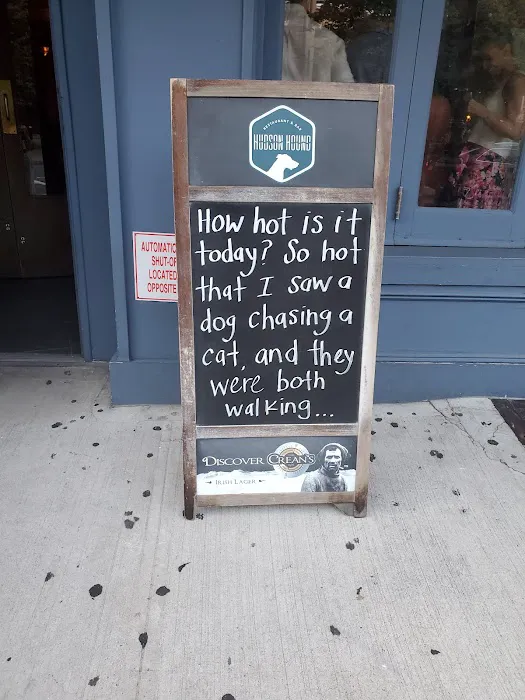 RESTAURANT & BAR
HUDSON HOUND
How hot is it
today? So hot
that I saw a
dog chasing a
cat, and they
were both
walking...
AUTOMATIC
SHUT-OF
LOCATED
OPPOSITE
DISCOVER CREAN'S
IRISH LAGER